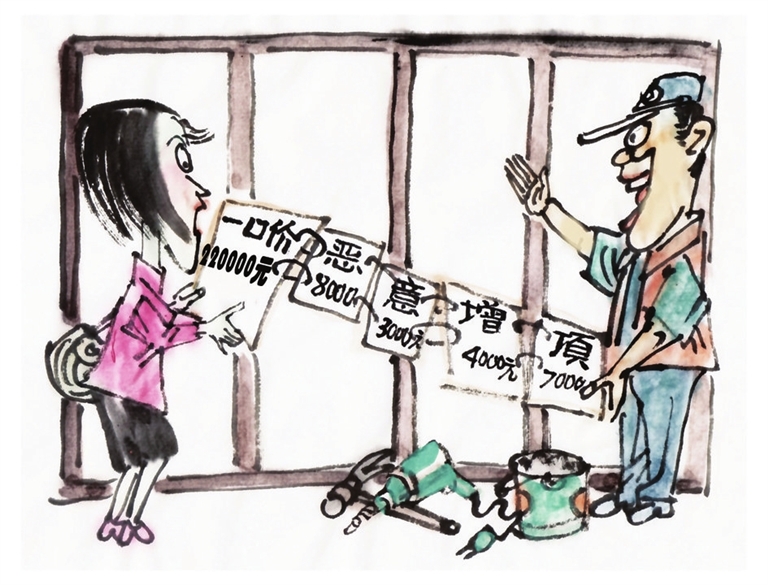 一口价
220000元
恶
8000
意
3000元
增
4000元
項
7000